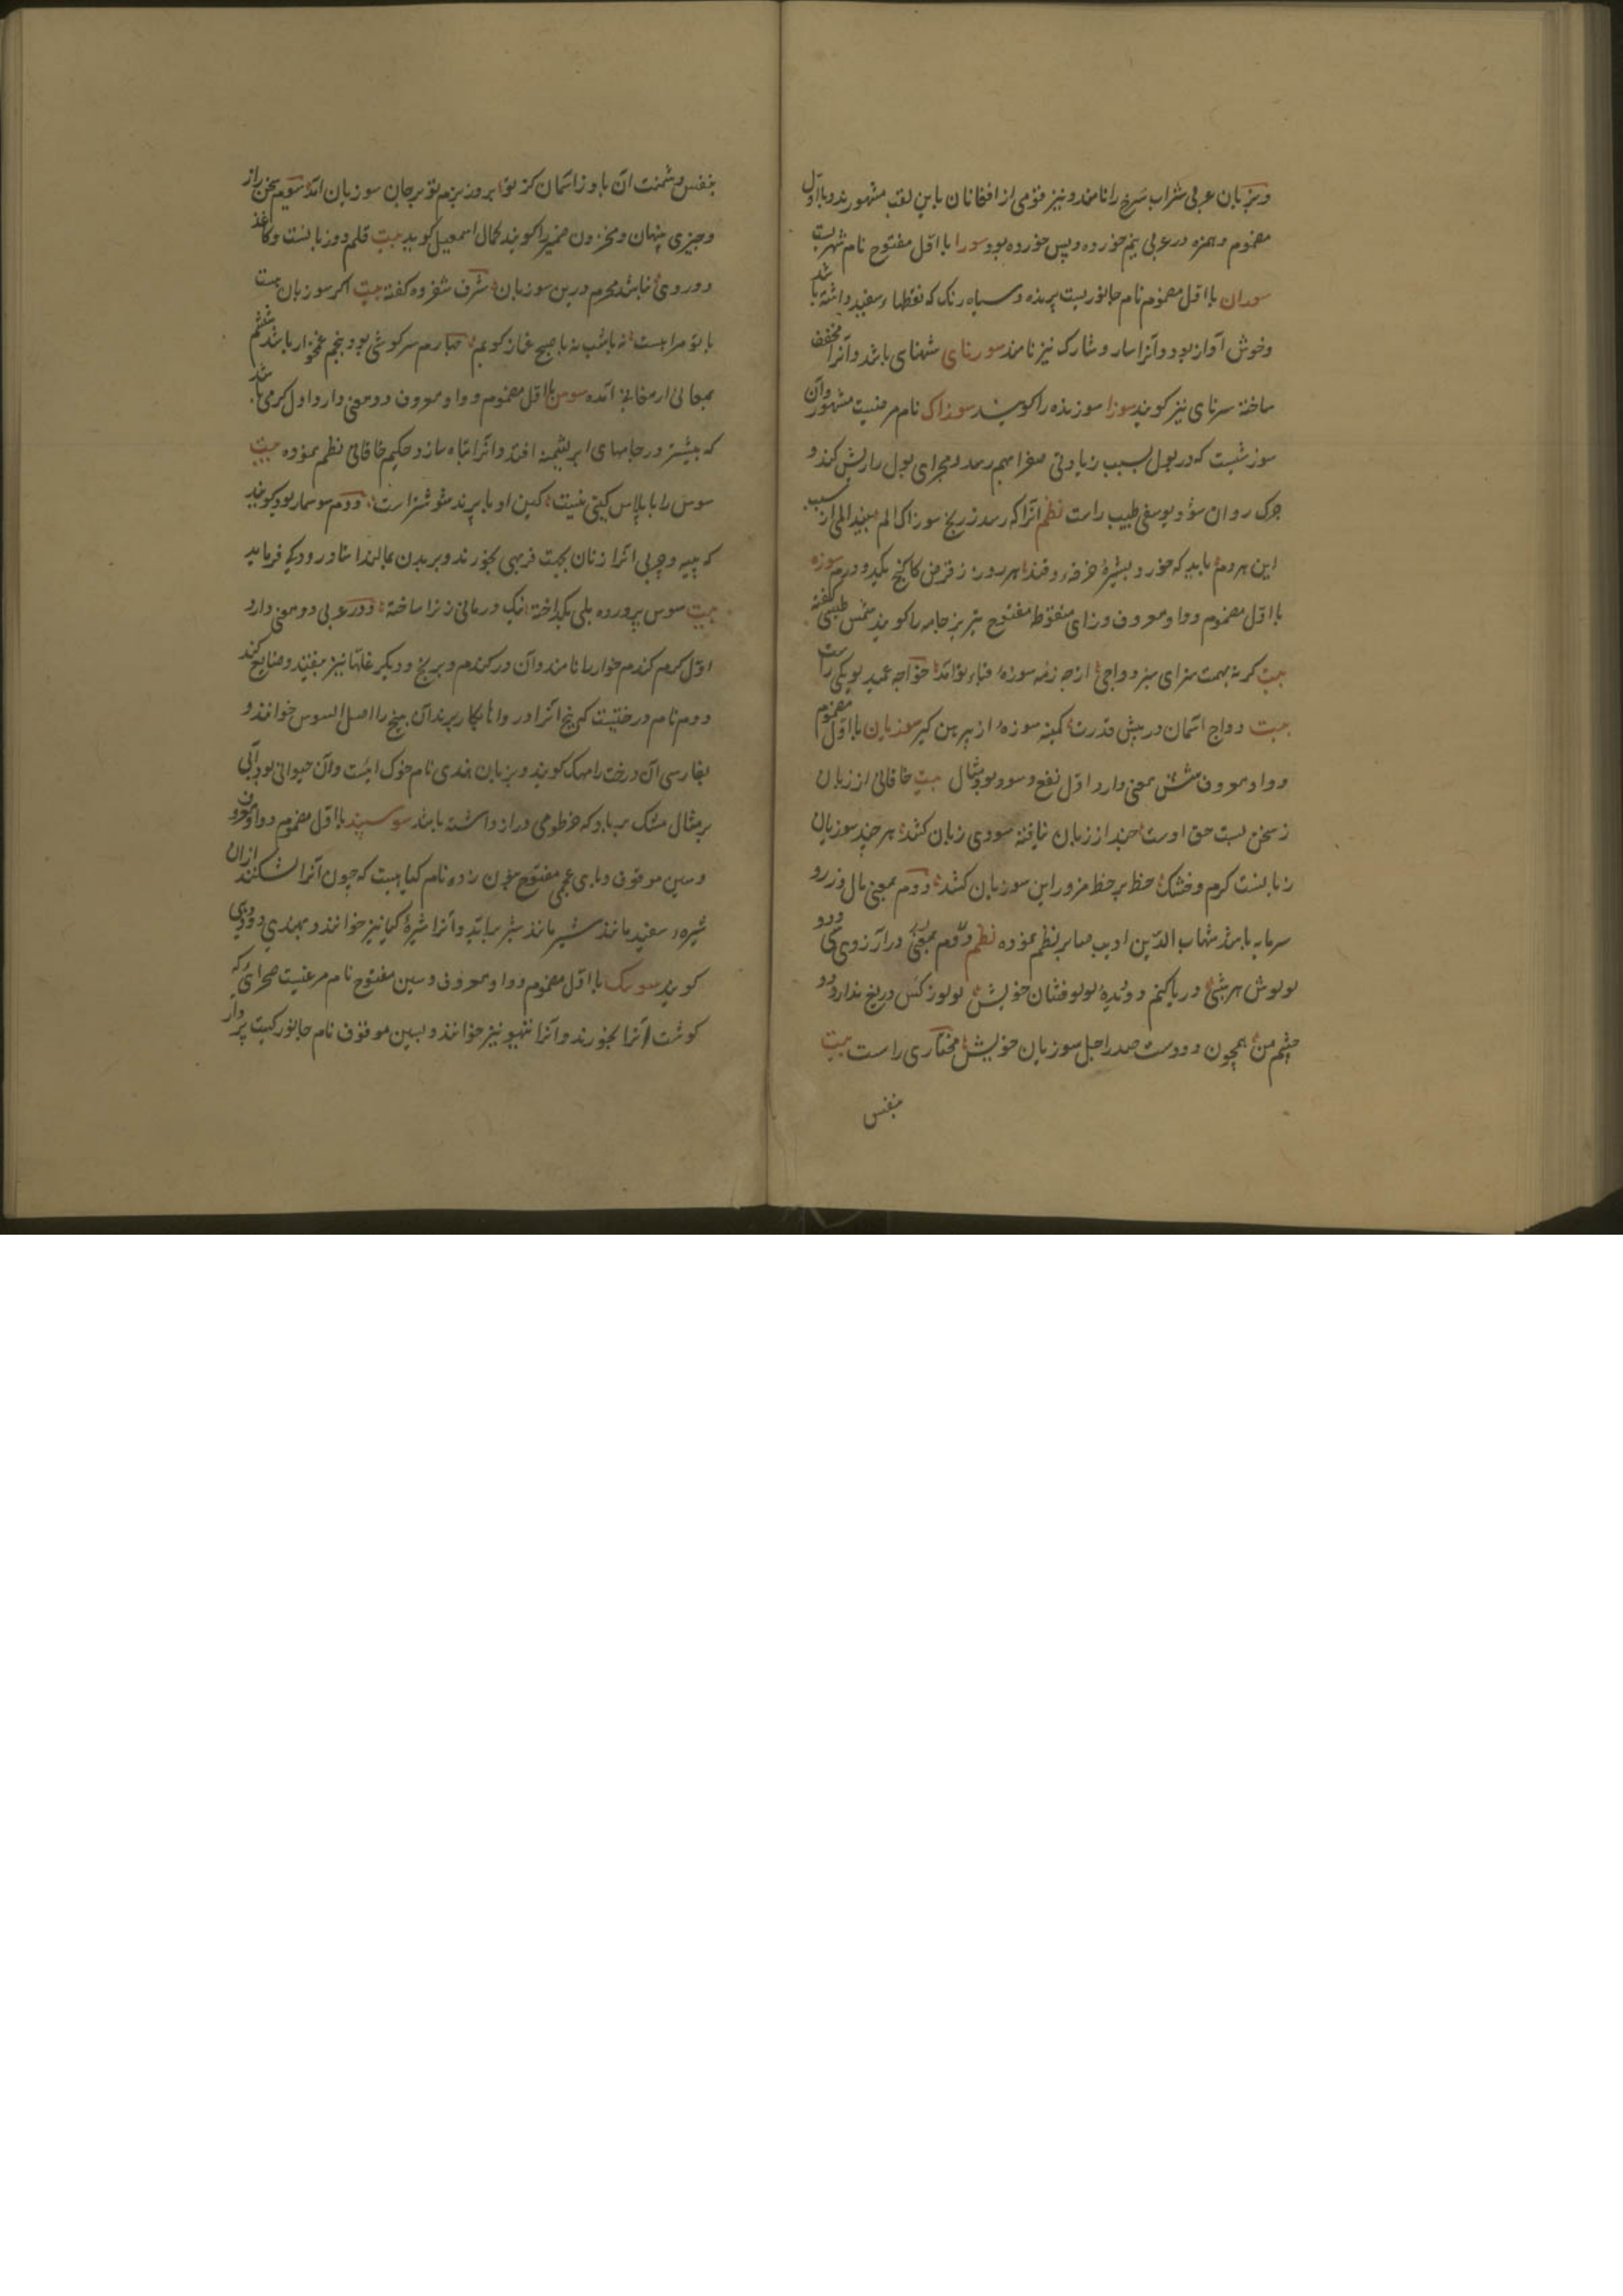 وبزبان عربی شراب سرخ را نامند و نیز قومی از افغانان باین لقب مشهورند و با اول
مضموم و همزه در عربی نیم خورده و پس خورده بود سورا با اول مفتوح نام شهریست
سوران با اول مضموم نام جانوریست پرنده و سیاه رنک که نقطهاء سفید داشته باشد
و خوش آواز بود و آنرا سار و شارک نیز نامند سورنای شهنای باشد و آنرا مخفف
ساخته سرنای نیز کویند سوزا سوزنده را کویند سوزاک نام مرضیست مشهور و آن
سوزشیست که در بول بسبب زیادتی صفرا بهم رسد و مجرای بول را ریش کند و
چرک روان شود یوسفی طبیب راست نظم آنرا که رسد ز رنج سوزاک الم بیند المی از سبب
این هر دم باید که خورد بشیرهٔ خرفه و قند هر روز ز قرص کاکنج یکدو درم سوزه
با اول مضموم و واو معروف و زای منقوط مفتوح تیریز جامه را کویند شمس طبسی گفته
بیت کر نه بهمت سزای سبز دواجی از چه زمه سوزهٔ قباء تو آمد خواجه عمید لویکی راست
بیت دواج آسمان در پیش قدرت کمینه سوزهٔ از پیرهن کیر سوزیان با اول مضموم
و واو معروف شش معنی دارد اول نفع و سود بود مثال بیت خاقانی از زبان
ز سخن بست حق اوست چند از زبان نیافته سودی زبان کشد هر چند سوزیان
زبانست کرم و خشک خط بر خط مزور این سوزیان کشد دوم بمعنی مال و زر و
سرمایه باشد شهاب الدین ادیب صابر نظم نموده نظم در آرزوی
لولوش هر شبی دریا کنم دو دیدهٔ لولو فشان خویش لولو ز کس دریغ ندارد دو
چشم من همچون دو دست صدر اجل سوزیان خویش مختاری راست بیت
بنفس
بنفس دشمنت آن باد ز آسمان کز تو بروز بزم تو بر جان سوزیان آمد سیوم سخن راز
و چیزی پنهان و مخزون ضمیر را کویند کمال اسمعیل کوید بیت قلم دو زبانست و کاغذ
دو روی نباشد محرم درین سوزیان شرف شفروه کفته بیت اکر سوزیان هست
با تو مرا هست نه با شب نه با صبح غماز کویم چهارم سرکوشی بود پنجم غمخوار باشد ششم
بمعانی ارمغانی آمده سوس با اول مضموم و واو معروف دو معنی دارد اول کرمی باشد
که بیشتر در جامهای ابریشمینه افتد و آنرا تباه سازد حکیم خاقانی نظم نموده بیت
سوس را با پلاس کینی نیست کین او با پرند شوشتر است دوم سوسمار بود کویند
که پیه و چربی آنرا زنان بجهت فربهی بخورند و بر بدن بمالند استاد رودکی فرماید
بیت سوس پرورده بلی بکداخته نیک درمانی زنرا ساخته و در عربی دو معنی دارد
اول کرم کندم خوار را نامند و آن در کندم و برنج و دیکر غلها نیز بیفتد و ضایع کند
دوم نام درختیست که بیخ آنرا در دواها بکار برند آن بیخ را اصل السوس خوانند و
بفارسی آن درخت را مهک کویند و بزبان هندی نام خوک آبیست و آن حیوانی بود آبی
بر مثال مشک پر باد که خرطومی دراز داشته باشد سوسپند با اول مضموم و واو معروف
و سین موقوف و بای عجمی مفتوح بنون زده نام کیاهیست که چون آنرا بشکنند از آن
شیرهٔ سفید مانند شیر براید و آنرا شیرهٔ کیا نیز خوانند و بهندی دودی
کویند سوسک با اول مضموم و واو معروف و سین مفتوح نام مرغیست صحرائی که
کوشت آنرا بخورند و آنرا تیهو نیز خوانند و بسین موقوف نام جانوریست پردار